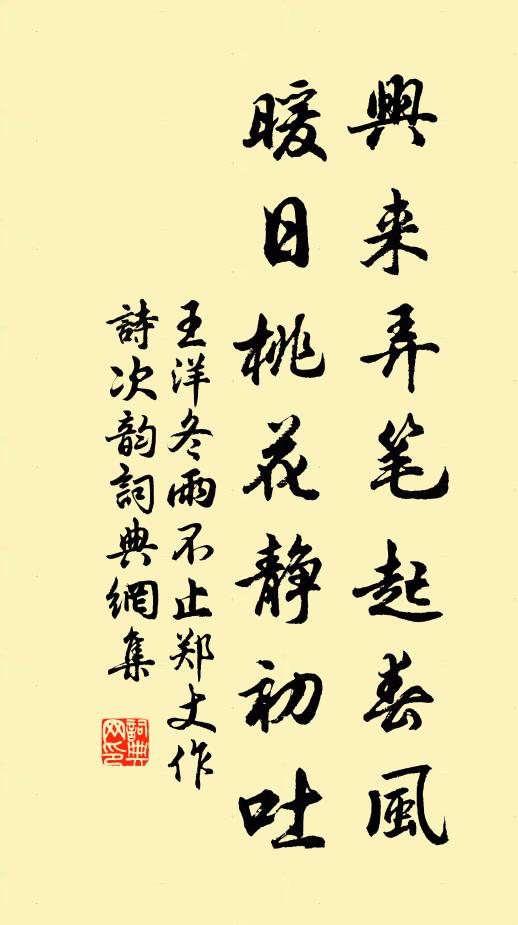 興来弄笔起春風
暖日桃花静初吐
王洋冬雨不止郑丈作
詩次韵詞典網集
詞典网印